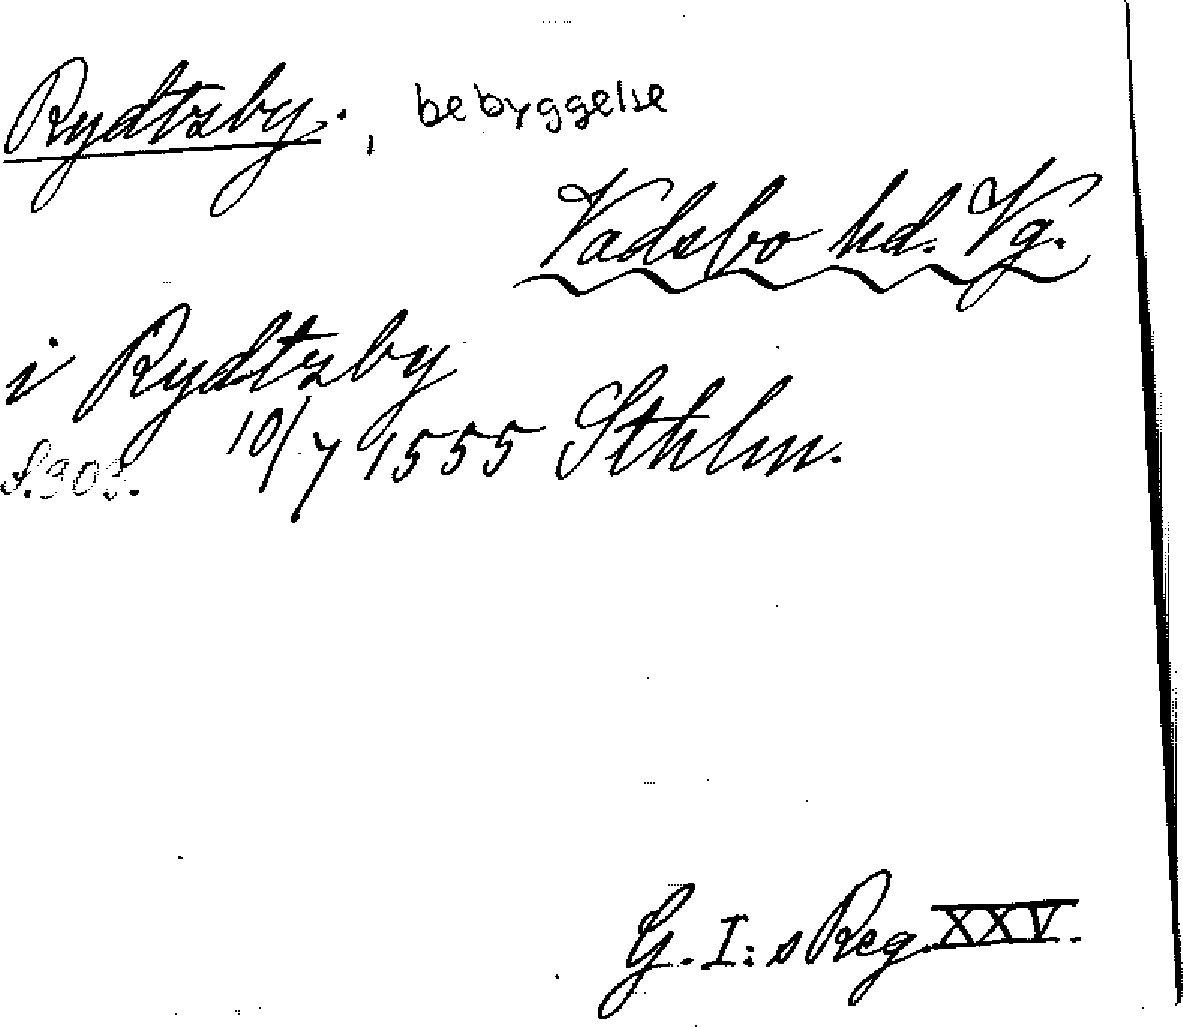 Rydtzby., bebyggelse
Vadsbo hd. Vg.
i Rydtzby
S.308. 10/7 1555 Sthlm.
G. I:s Reg. XXV.